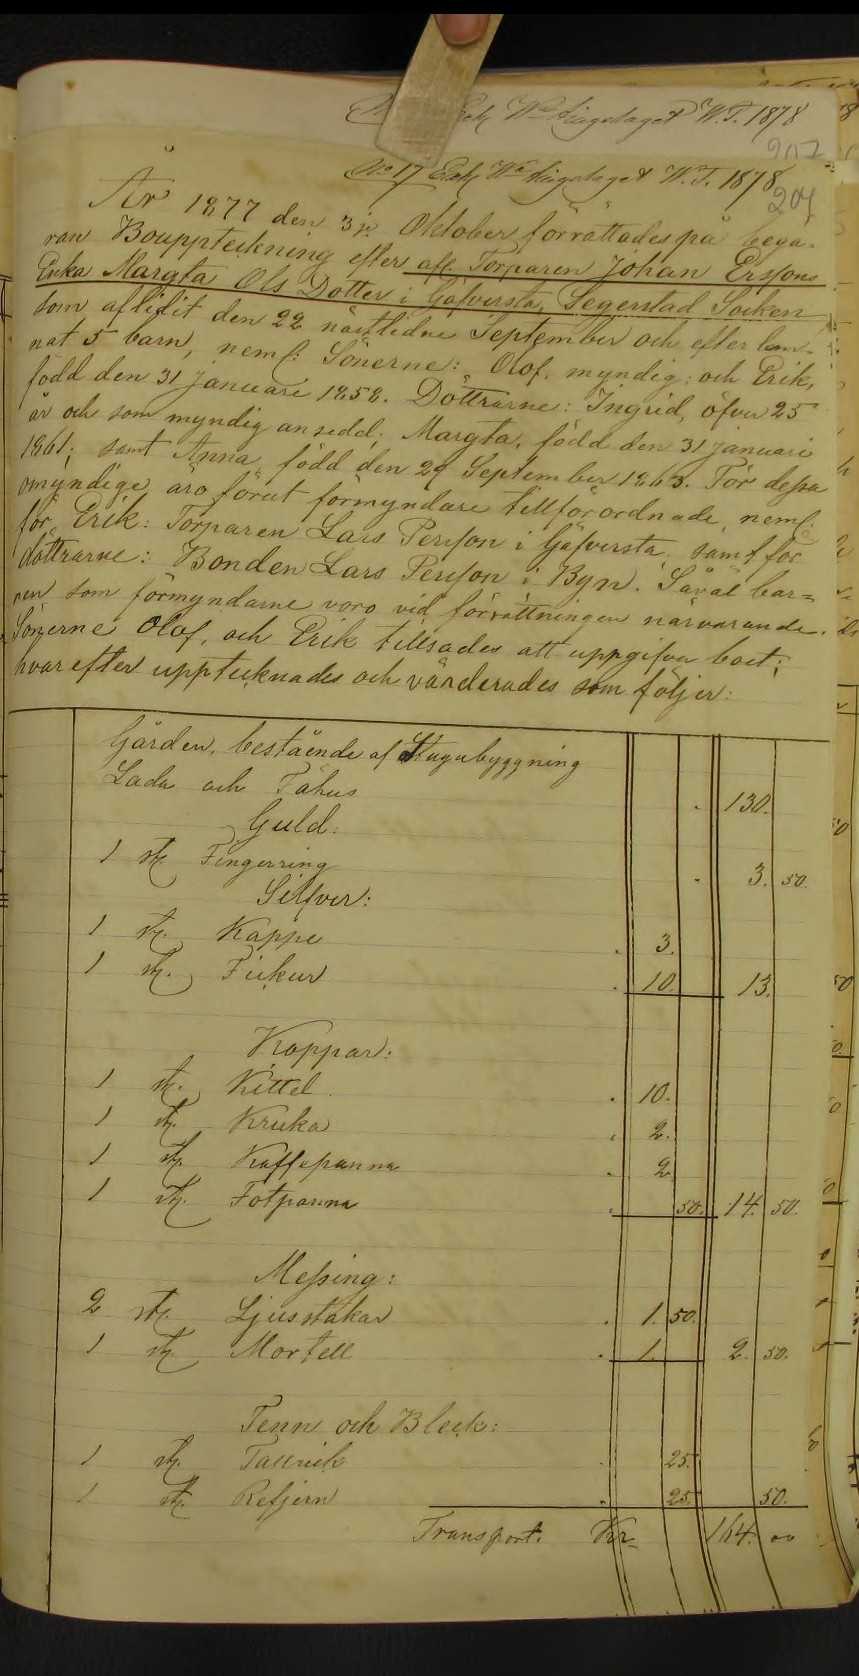 W. T. 1878
207
No 17 W. T. 1878
204
År 1877 den 31 Oktober förrättades på begä-
ran Bouppteckning efter afl. Torparen Johan Erssons
Enka Margta Ols Dotter i Gäfversta, Segerstad Socken
som aflidit den 22 nästledne September och efter lem-
nat 5 barn, neml: Sönerne: Olof, myndig; och Erik,
född den 31 januari 1858. Döttrarne: Ingrid, öfver 25
år och som myndig ansedd; Margta, född den 31 januari
1861; samt Anna född den 29 September 1863. För dessa
omyndige äro förut förmyndare tillförordnade, neml:
för Erik: Torparen Lars Persson i Gäfversta; samt för
döttrarne: Bonden Lars Persson i Byn. Såväl bar=
nen som förmyndarne voro vid förrättningen närvarande.
Sönerne Olof, och Erik tillsades att uppgifva boet;
hvarefter upptecknades och värderades som följer:
Gården, bestående af Stugubyggning
Lada och Fähus 130.
Guld:
1 st. Fingerring 3. 50.
Silfver:
1 st. Kappe 3.
1 st. Fickur 10. 13.
Koppar:
1 st. Kittel 10.
1 st. Kruka 2.
1 st. Kaffepanna 2
1 st. Fotpanna 50. 14. 50.
Messing:
2 st. Ljusstakar 1. 50.
1 st. Mortell 1. 2. 50.
Tenn och Bleck:
1 st. Tallrik 25.
1 st. Refjern 25. 50.
Transport. Kr 164. 00